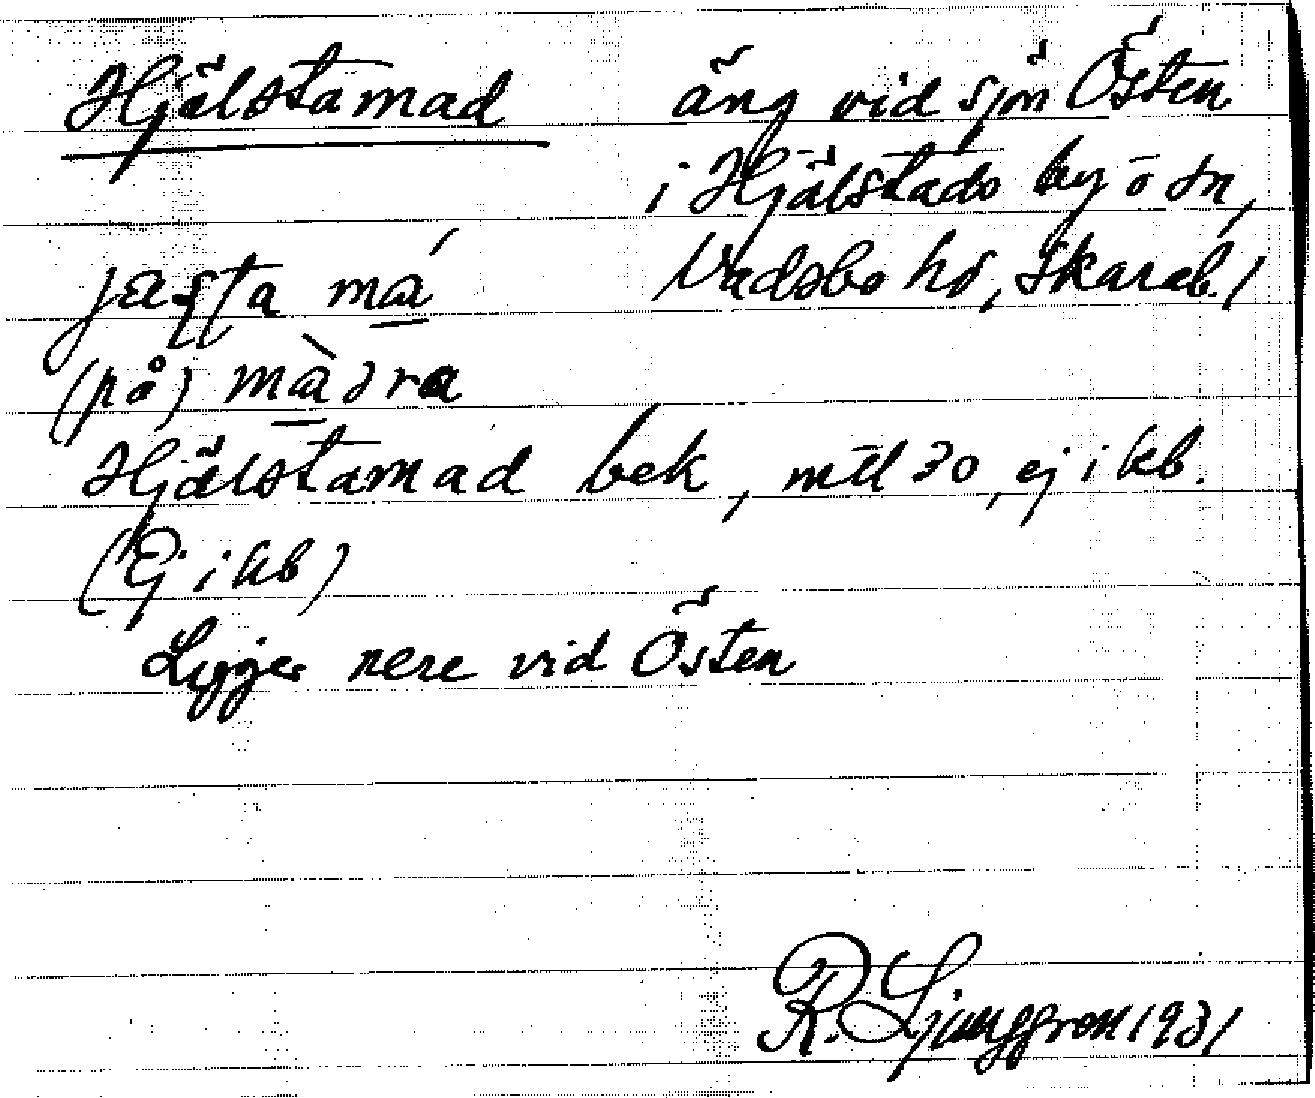 Hjälstamad äng vid sjön Östen
i Hjälstads by o sn,
Vadsbo hd, Skarab.l
jæsta má
(på) màdra
Hjälstamad bek, mtl 30, ej i kb.
(Ej i kb)
Ligger nere vid Östen
R. Ljunggren 1931